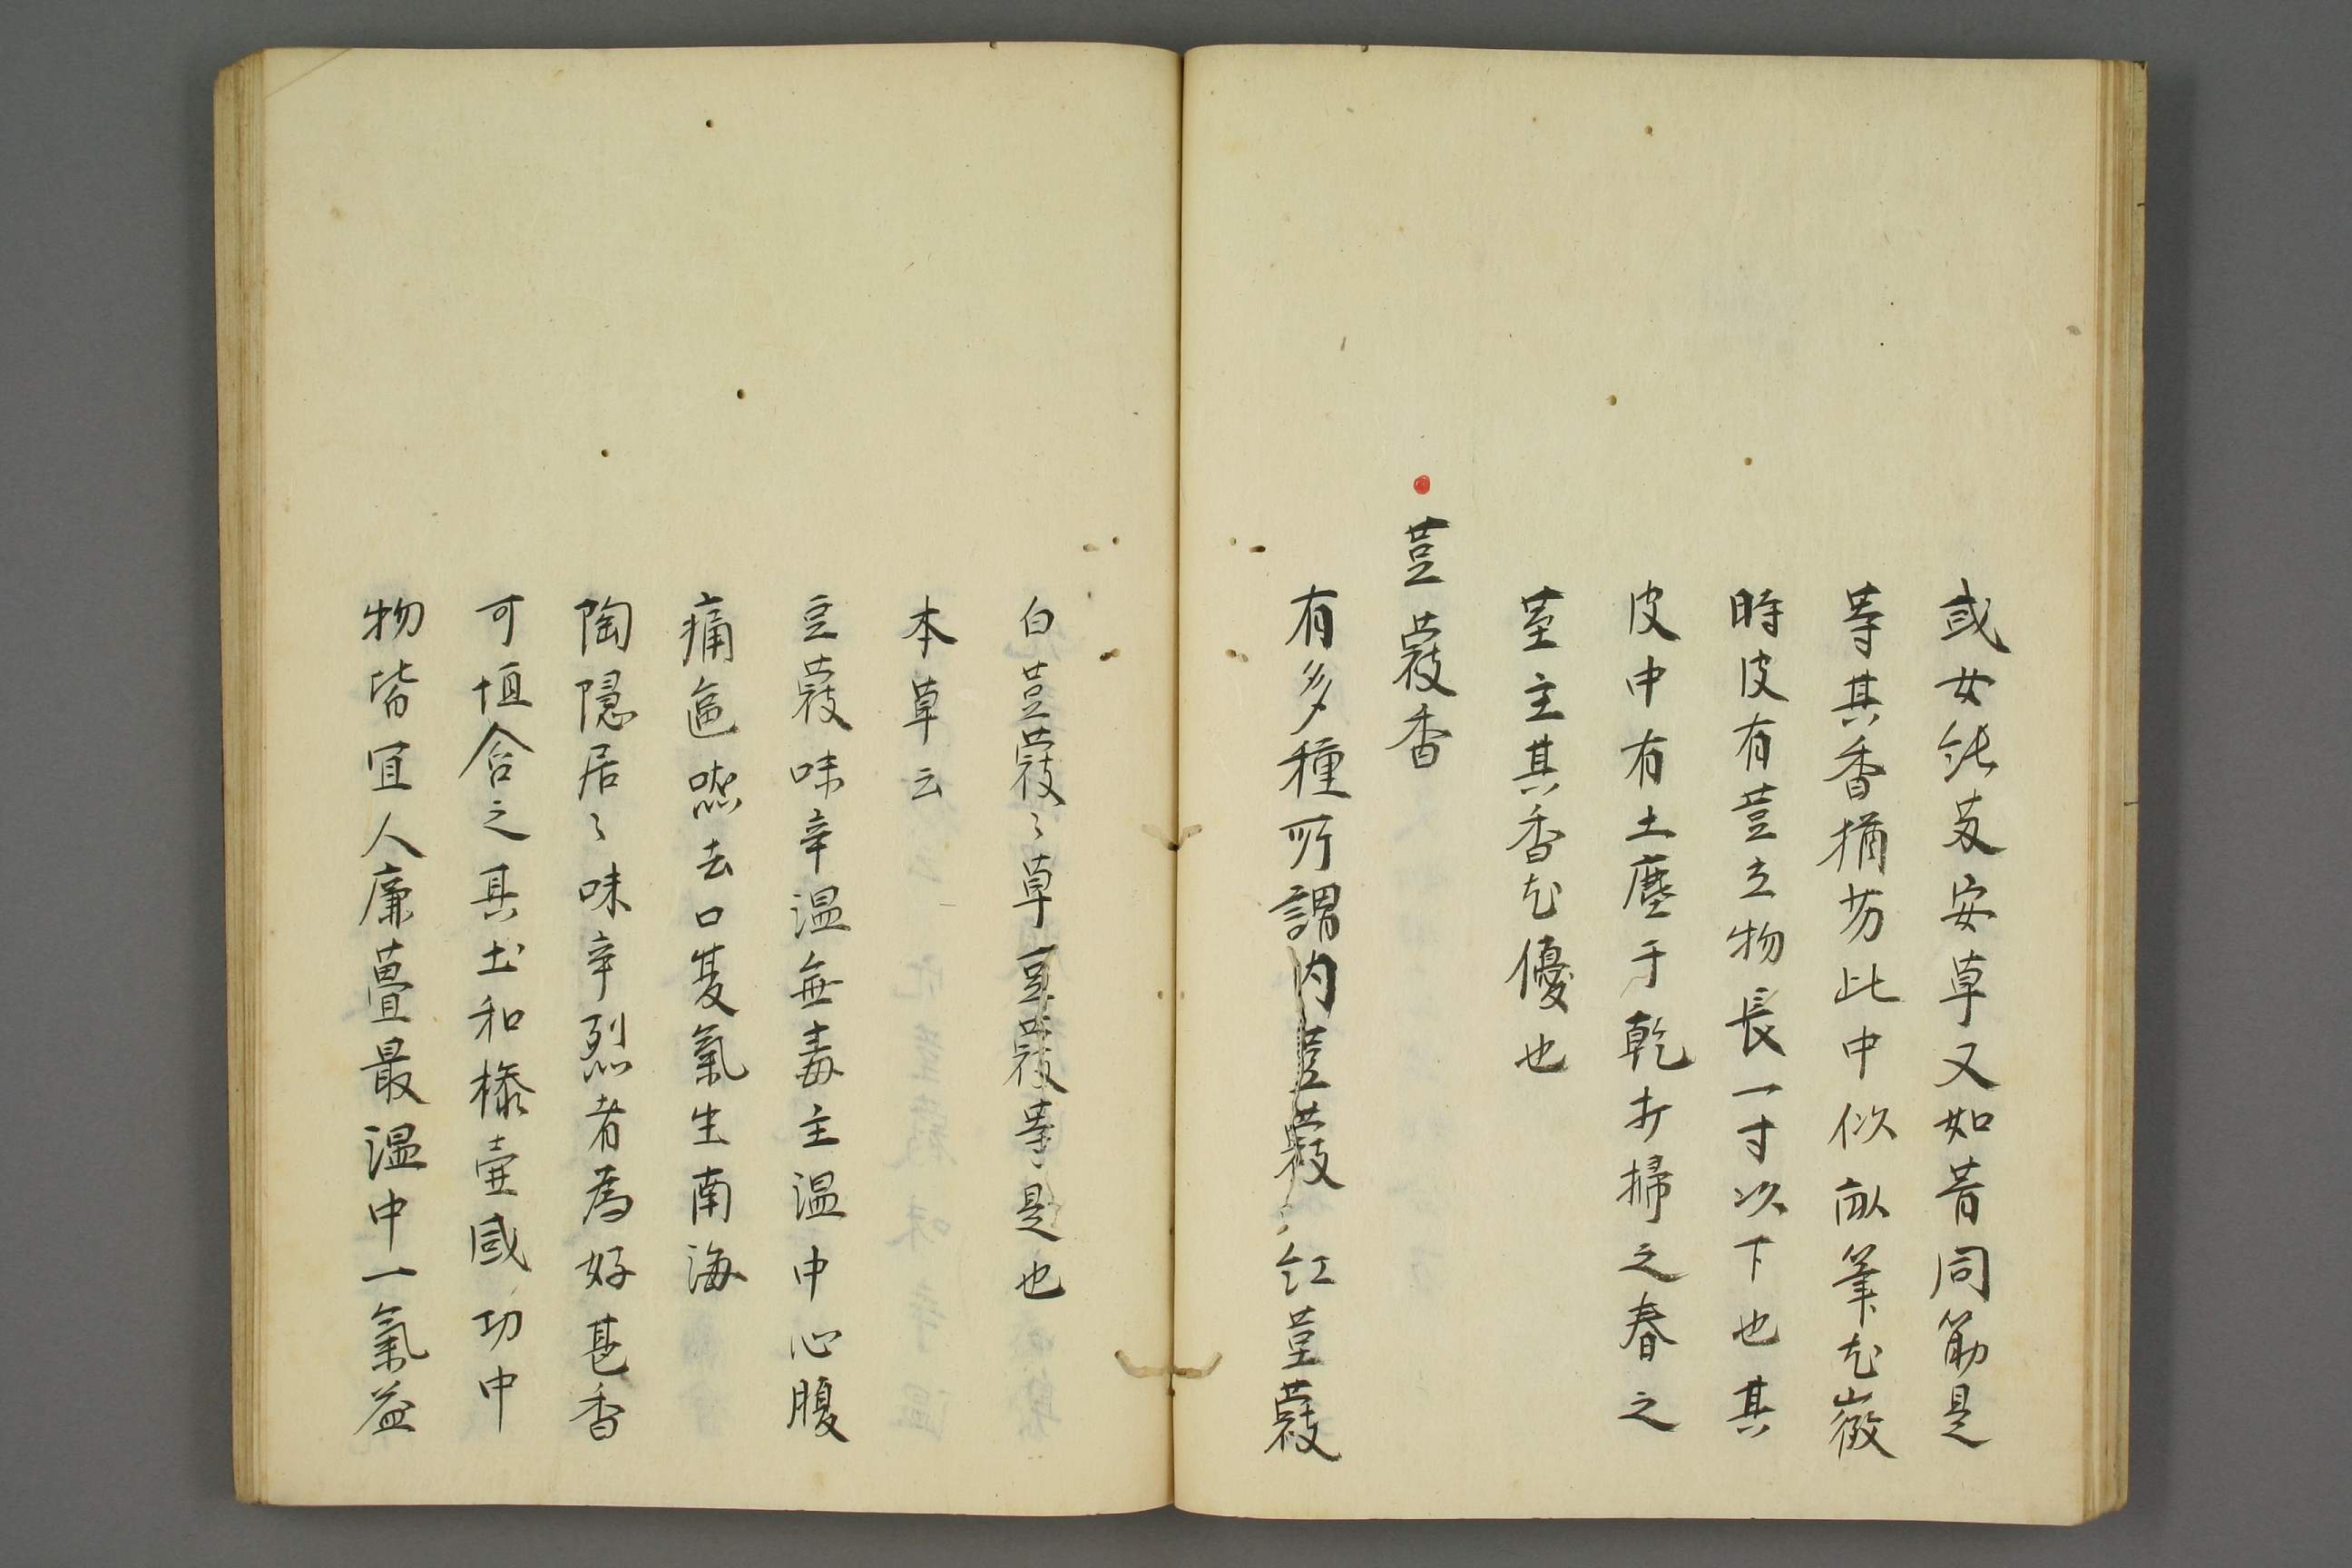 或女能芨安草又如昔同筋是
等其香猶芳比中似
時皮有荳立物長一寸次下也其
皮中有土塵于乾打掃之舂之
荎主其香尤優也
荳蔲香
有多種所謂内荳蔲々紅荳蔲
白荳蔲々草荳蔲等是也
本草云
豆蔲味辛温無毒主温中心腹
痛去口氣生南海
陶隱居々味辛烈者為好甚香
可恒含之其出和功中
物皆宜人廉薑最温中一氣益